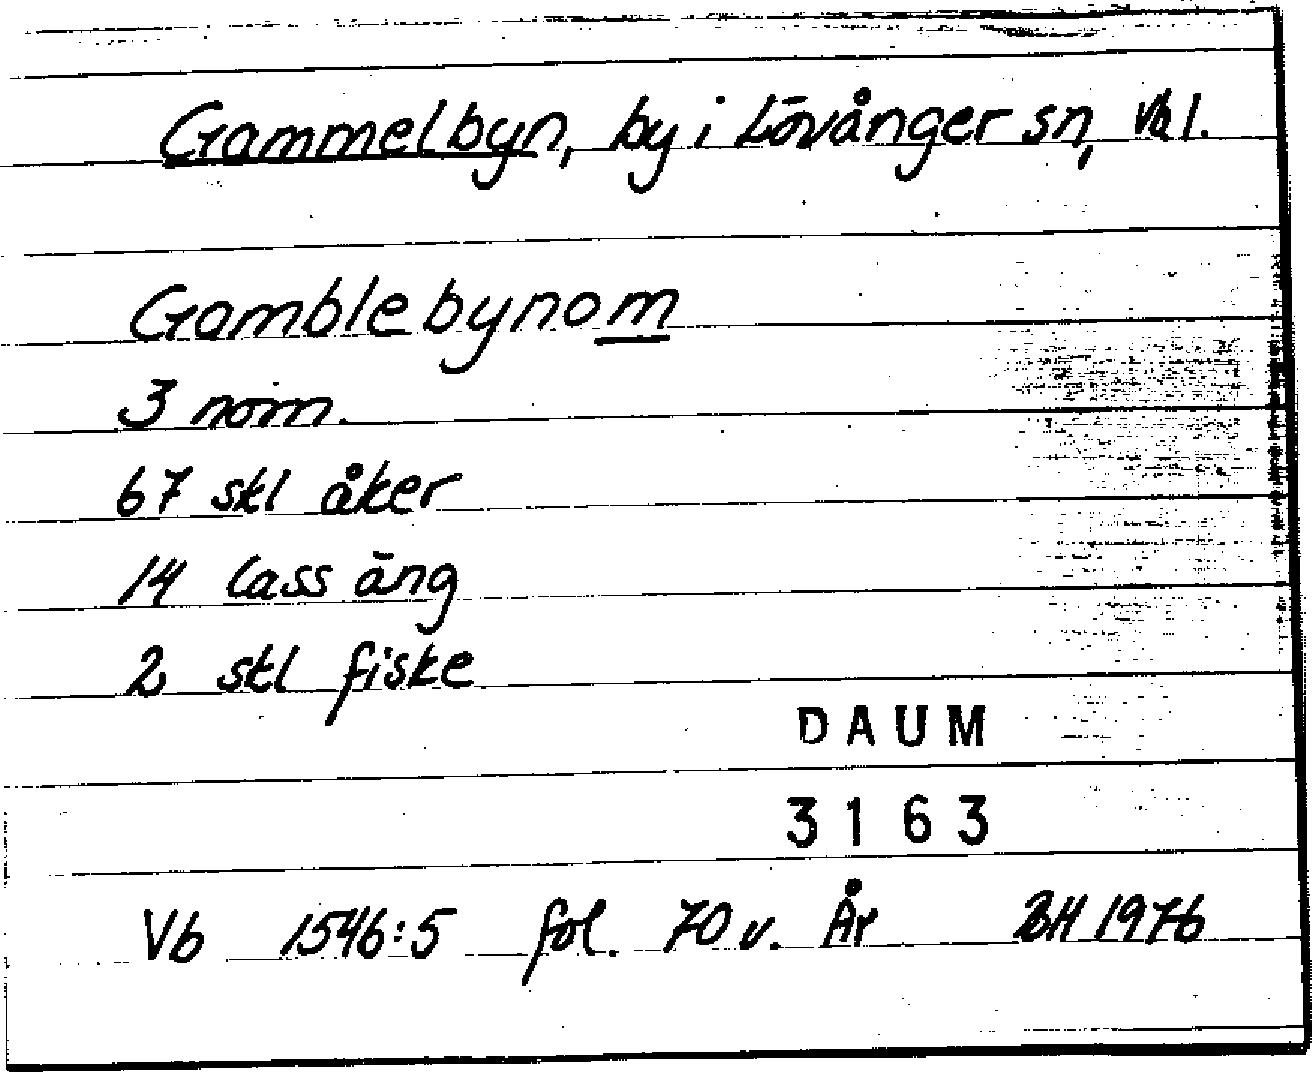 Gammelbyn, by i Lövånger sn, Vbl.
Gamblebynom
3 nom.
67 skl åker
14 lass äng
2 skl fiske
DAUM
3163
Vb 1546:5 fol. 70 v. År BH 1976